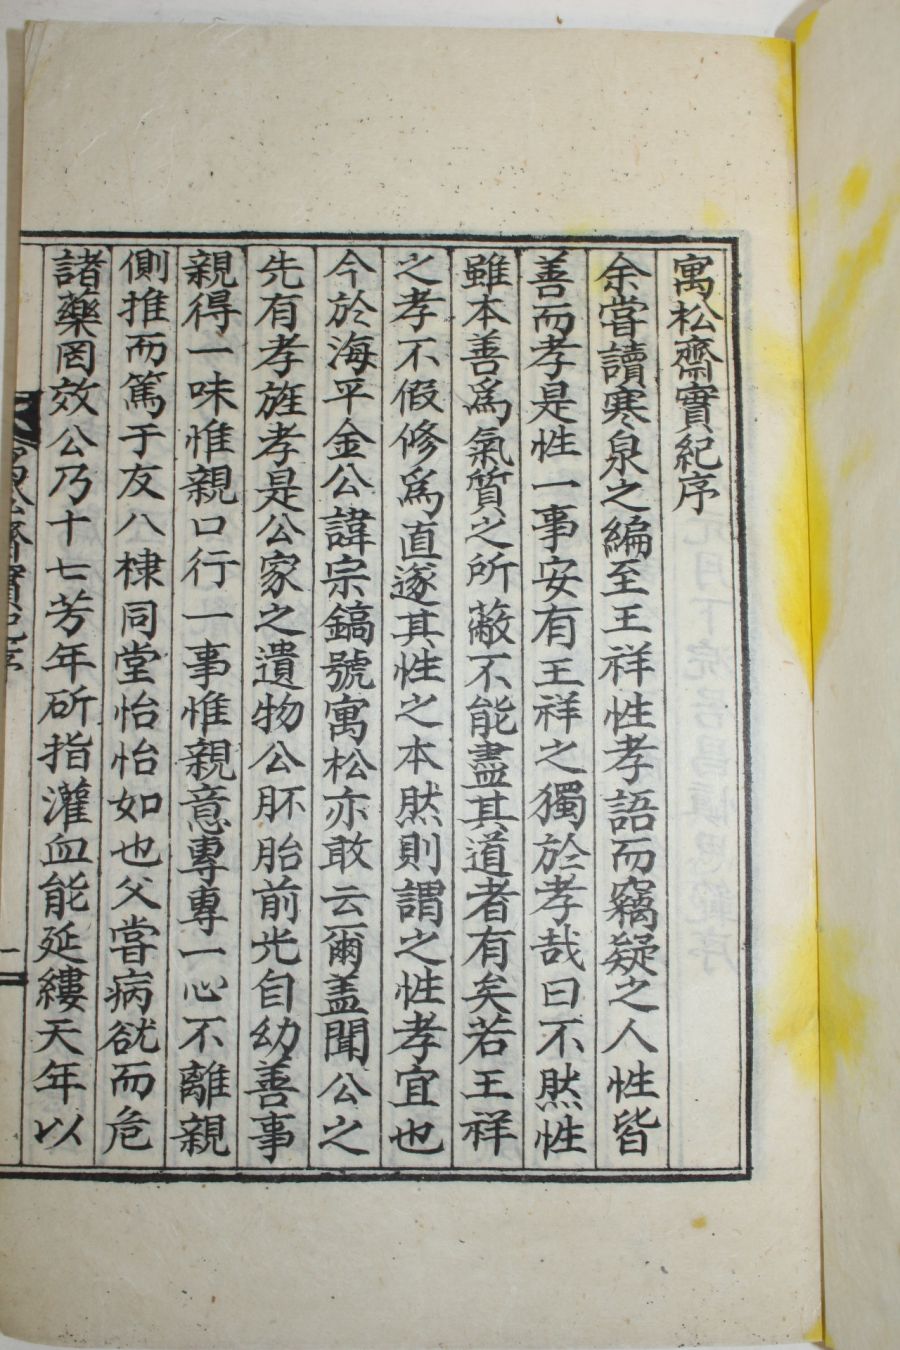 寓松齋實紀序
余嘗讀寒泉之編至王祥性孝語而竊疑之人性皆
善而孝是性一事安有王祥之獨於孝哉曰不然性
雖本善爲氣質之所蔽不能盡其道者有矣若王祥
之孝不假修爲直遂其性之本然則謂之性孝宜也
今於海平金公諱宗鎬號寓松亦敢云爾盖聞公之
先有孝旌孝是公家之遺物公胚胎前光自幼善事
親得一味惟親口行一事惟親意專專一心不離親
側推而篤于友八棣同堂怡怡如也父嘗病欲而危
諸藥罔效公乃十七芳年斫指灌血能延縷天年以
寓松齋實紀序
一